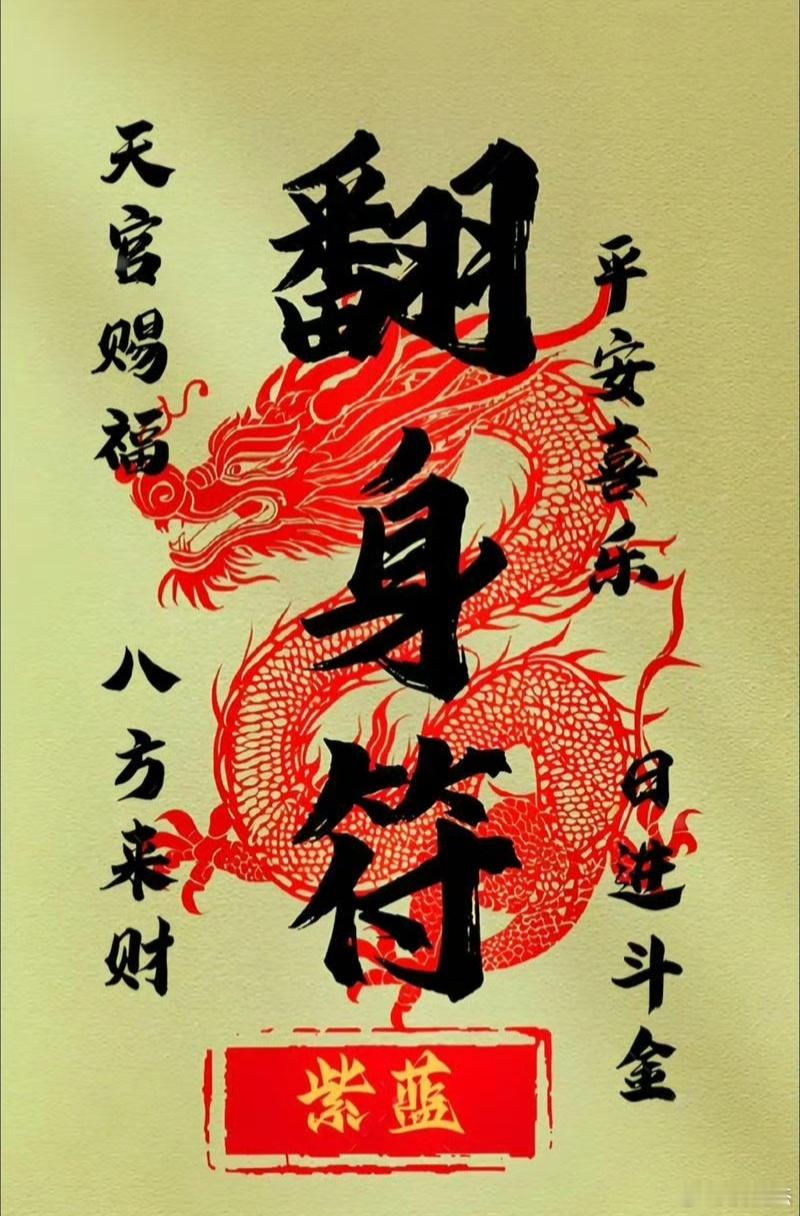 翻身符
平安喜乐
日进斗金
天官赐福
八方来财
紫蓝